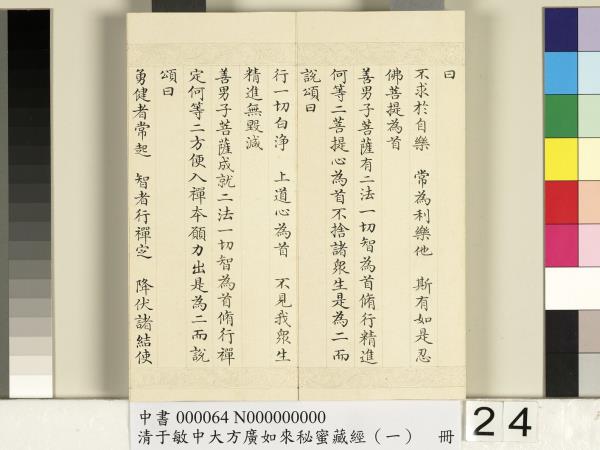 曰
不求於自樂　常為利樂他　斯有如是忍
佛菩提為首
善男子菩薩有二法一切智為首脩行精進
何等二菩提心為首不捨諸衆生是為二而
說頌曰
行一切白淨　上道心為首　不見我衆生
精進無毀減
善男子菩薩成就二法一切智為首脩行禪
定何等二方便入禪夲願力出是為二而說
頌曰
勇健者常起　智者行禪定　降伏諸結使
中書 000064 N000000000
清于敏中大方廣如來秘蜜藏經（一）　冊
24